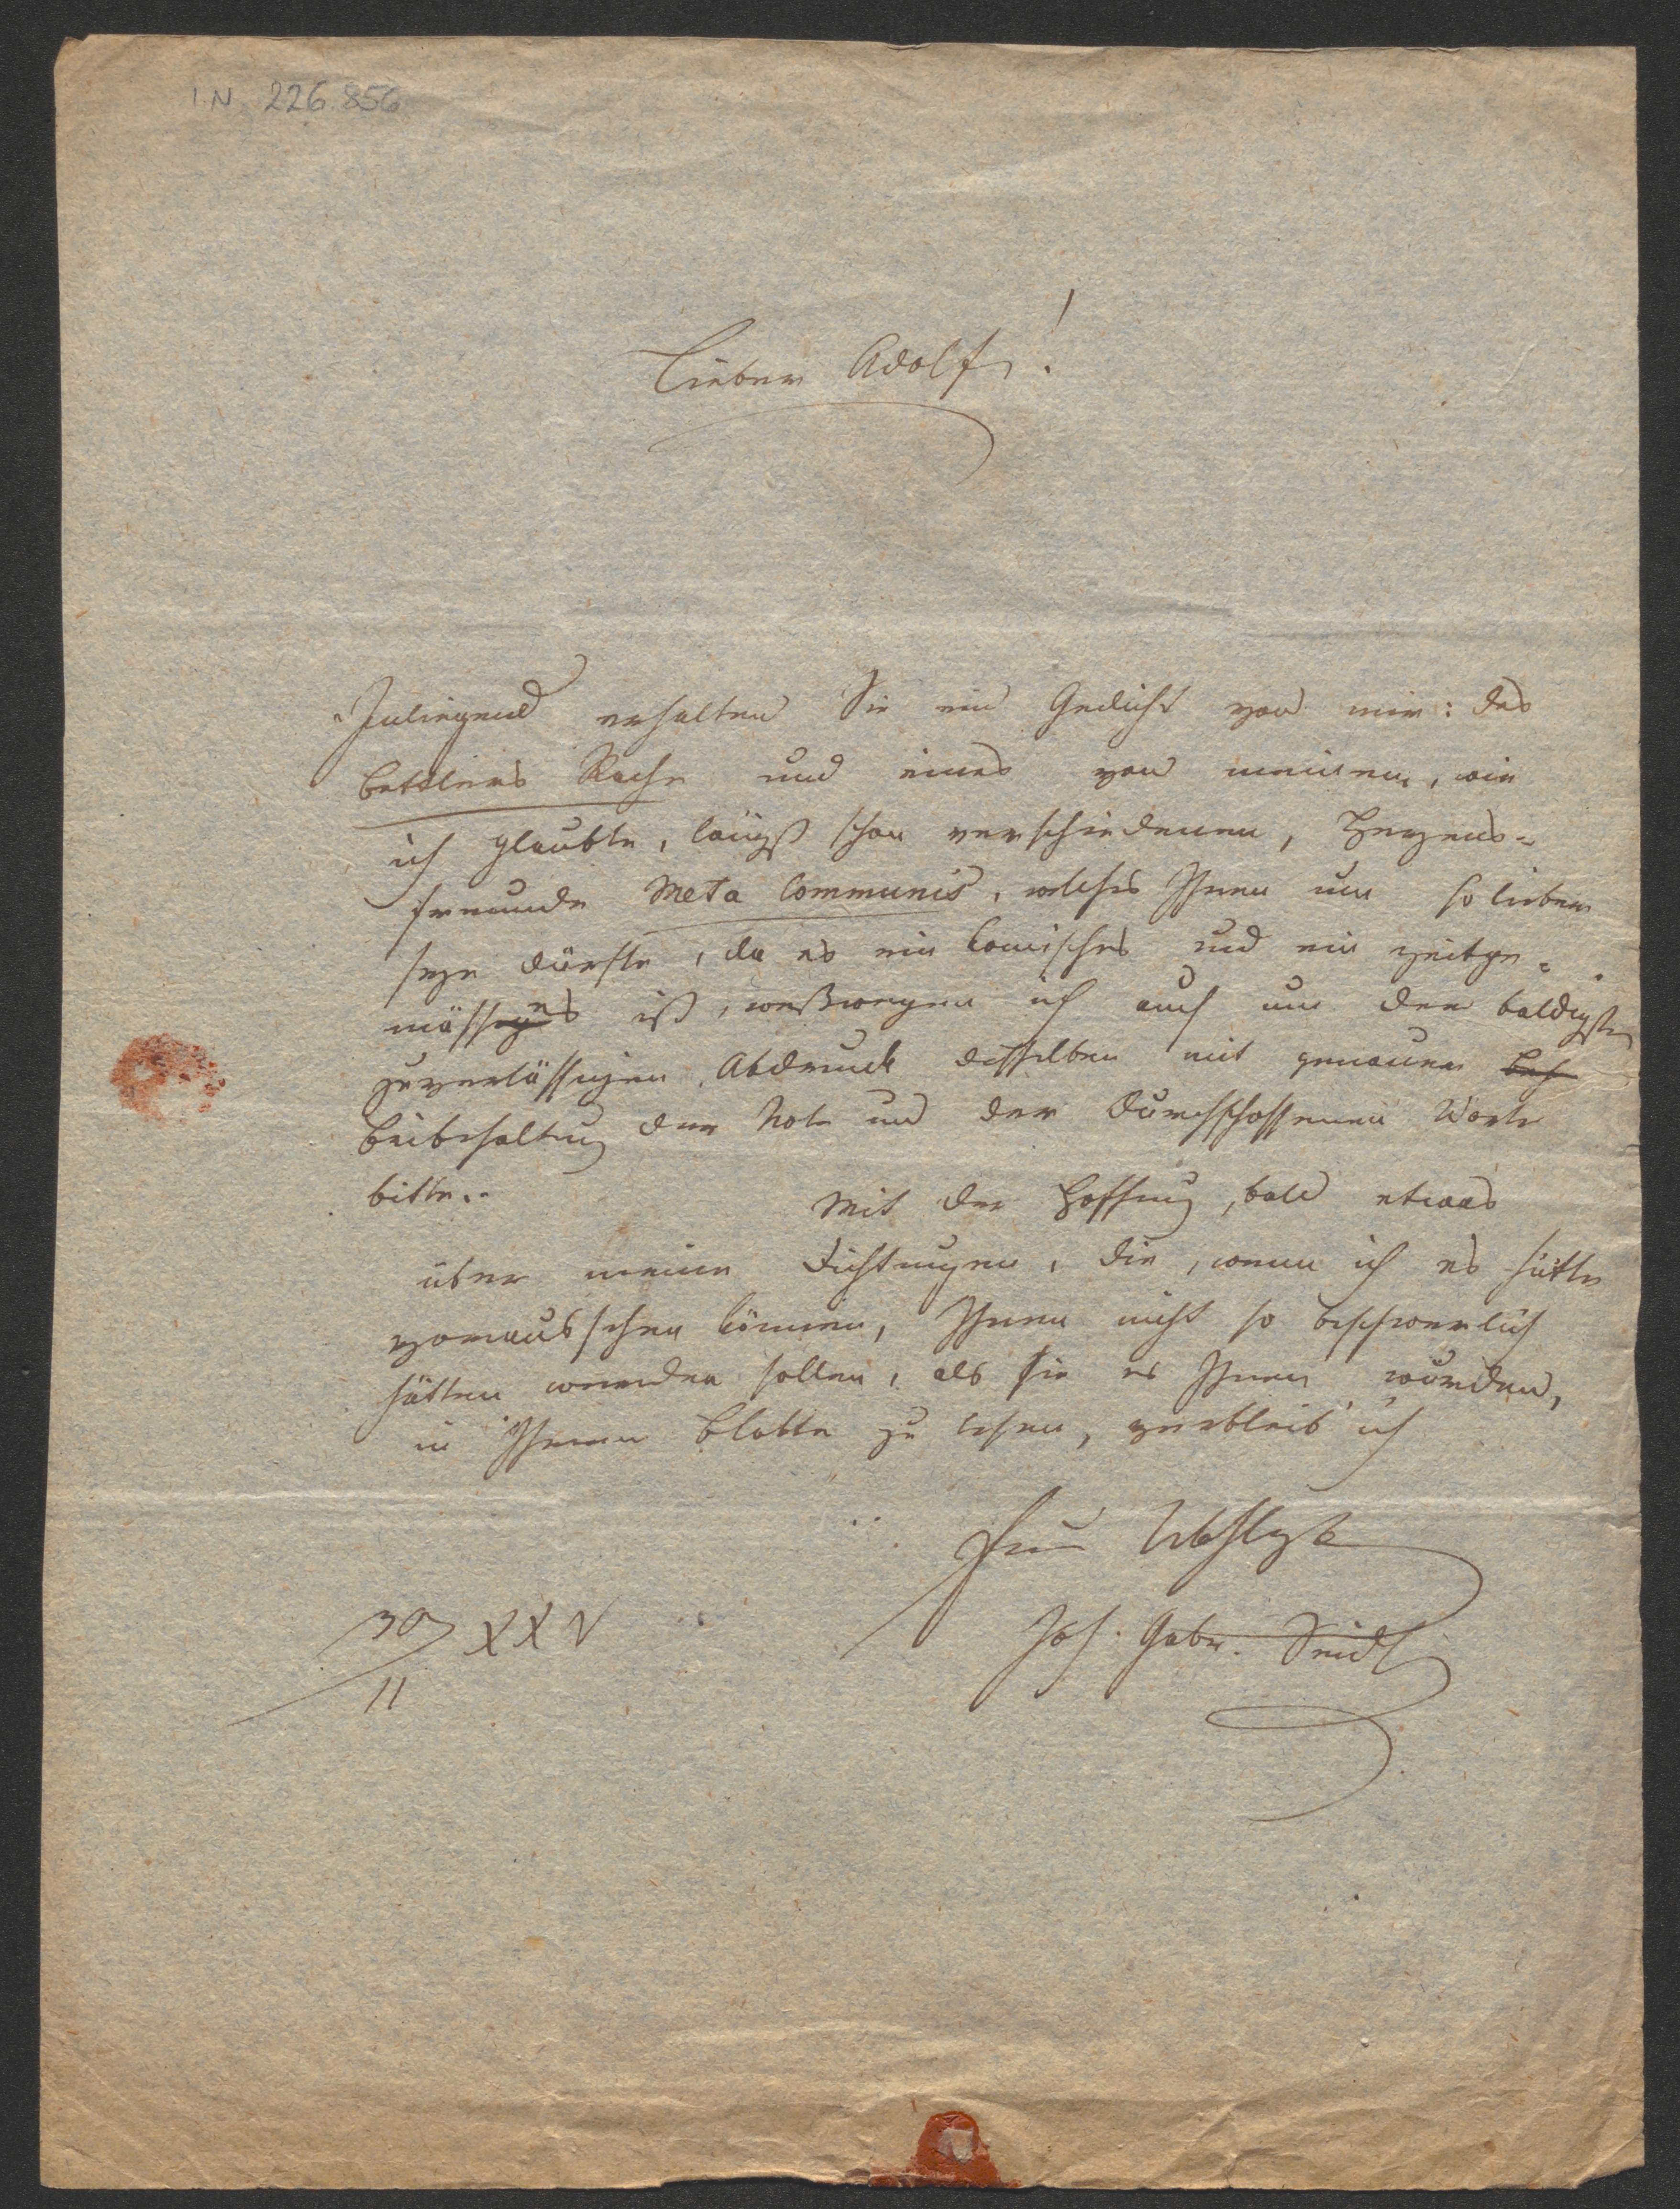 I.N. 226.856
Lieber Adolf!
Inliegend erhalten Sie ein Gedicht von mir: des
Bettlers Rache und eines von meinem, wie
ich glaubte, längst schon verschiedenen, Herzens-
freunde Meta Communis, welches Ihnen um so lieber
seyn dürfte, da es ein komisches und ein zeitge-
mässes ist, weßwegen ich auch um den baldigsten
zuverlässigen Abdruck desselben mit genauer
Beibehaltung der Note und der durchschossenen Worte
bitte.
Mit der Hoffnung, bald etwas
über meine Dichtungen, die, wenn ich es hätte
voraussehen können, Ihnen nicht so beschwerlich
hätten werden sollen, als sie es Ihnen wurden,
in Ihrem Blatte zu lesen, verbleib' ich
Ihr
Joh. Gabr. Seidl
30/11 XXV